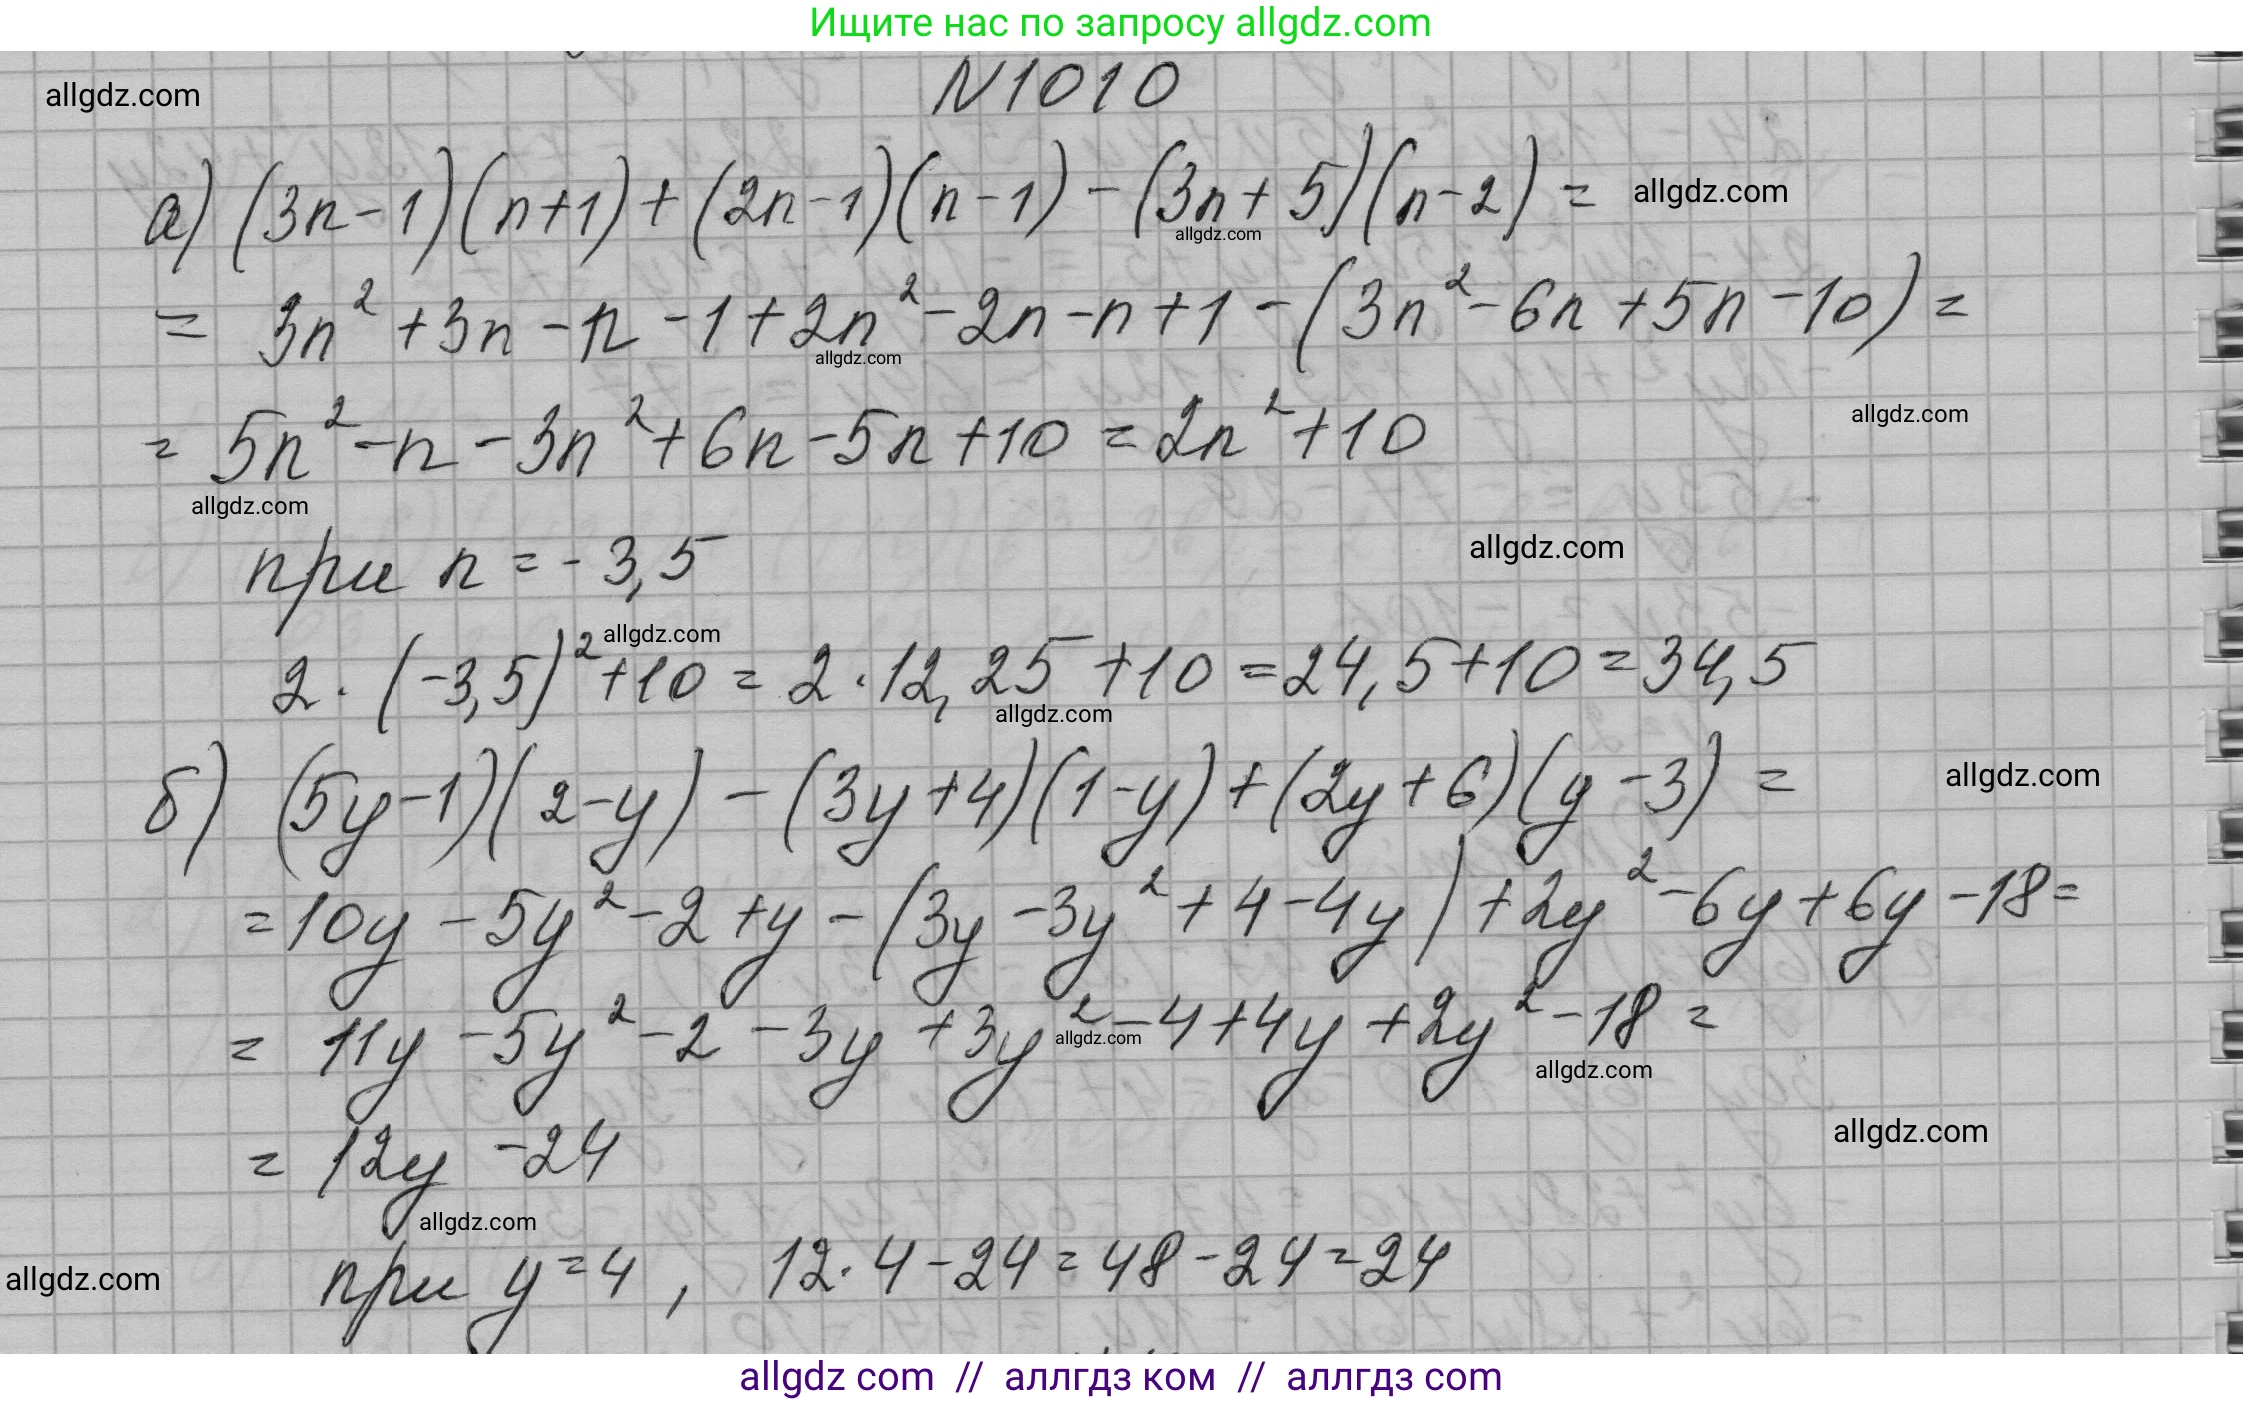 Ищите нас по запросу allgdz.com
N1010
allgdz.com
а) (3n-1)(n+1)+(2n-1)(n-1)-(3n+5)(n-2)=
allgdz.com
allgdz.com
= 3n²+3n-n-1+2n²-2n-n+1-(3n²-6n+5n-10)=
allgdz.com
= 5n²-n-3n²+6n-5n+10=2n²+10
allgdz.com
allgdz.com
при n=-3,5
allgdz.com
allgdz.com
2·(-3,5)²+10=2·12,25+10=24,5+10=34,5
allgdz.com
б) (5y-1)(2-y)-(3y+4)(1-y)+(2y+6)(y-3)=
allgdz.com
=10y-5y²-2+y-(3y-3y²+4-4y)+2y²-6y+6y-18=
= 11y-5y²-2-3y+3y²-4+4y+2y²-18=
allgdz.com
allgdz.com
= 12y-24
allgdz.com
allgdz.com
при y=4, 12·4-24=48-24=24
allgdz.com
allgdz com // аллгдз ком // аллгдз com